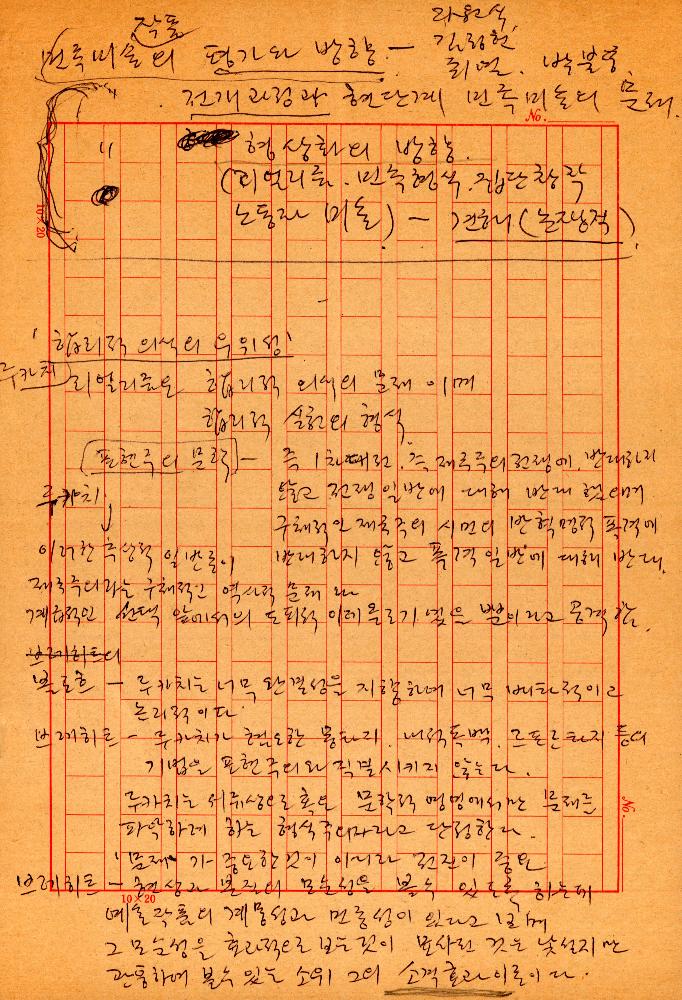 작품
민족미술의 평가와 방향 —
라원식
김정헌
최열. 박불똥
전개과정과 현단계 민족미술의 문제.
No.
〃 형상화의 방향.
(리얼리즘. 민족형식. 집단창작
노동과 미술) — 견해(논쟁적)
10×20
'합리적 의식의 우위성'
루카치 리얼리즘은 합리적 의식의 문제이며
합리적 실천의 형식
표현주의 문학 — 즉 1차대전. 즉 제국주의전쟁에. 반대하지
루카치 않고 전쟁일반에 대해 반대했으며
구체적인 제국주의 시민의 반혁명적 폭력에
이러한 추상적 일반론이 반대하지 않고 폭력일반에 대해 반대.
제국주의라는 구체적인 역사적 문제와
계급적인 선택 앞에서의 도피적 이데올로기였을 뿐이라고 공격함.
브레히트의
블로흐 — 루카치는 너무 완결성을 지향하며 너무 배타적이고
논리적이다.
브레히트 — 루카치가 혐오한 몽타지. 내적독백. 르포르타지 등의
기법을 표현주의와 직결시키지 않는다.
루카치는 서류상으로 혹은 문학적 명명에서만 문제를
파악하려 하는 형식주의자라고 단정한다.
'문제가 중요한것이 아니라 전진이 중요
브레히트 — 현상과 본질의 모순성을 볼수 있도록 하는데
10×20
No.
예술작품의 계몽성과 민중성이 있다고 보며
그 모순성을 효과적으로 보는것이 묘사된 것을 낯선지만
관통하여 볼수있는 소위 그의 소격효과이론이다.